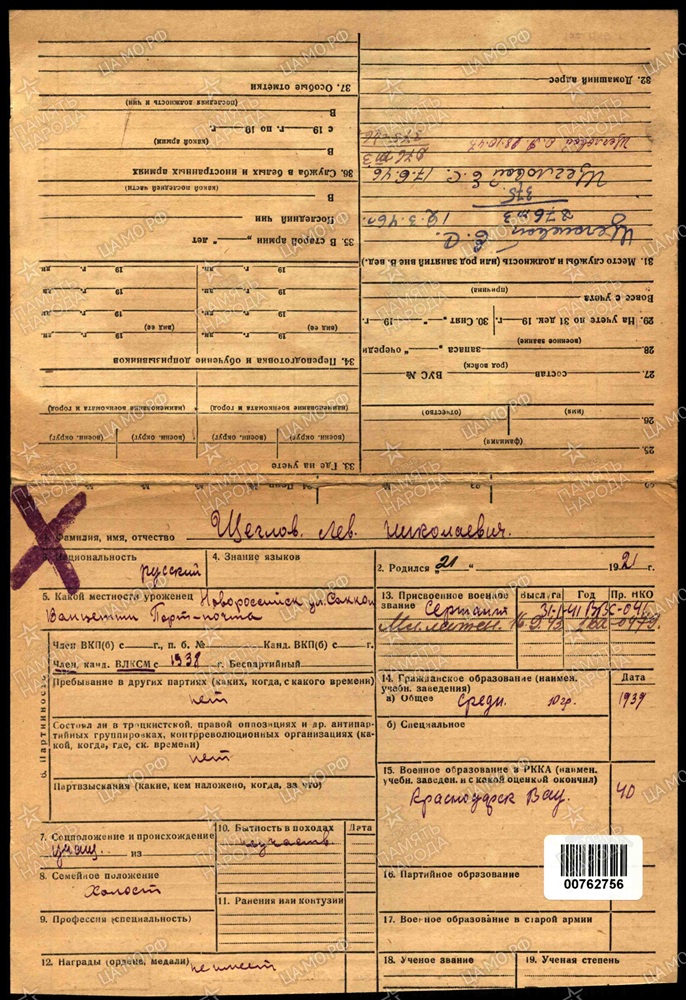 1. Фамилия, имя, отчество Щеглов Лев Николаевич.
3. Национальность русский
4. Знание языков
2. Родился "21" 1921 г.
5. Какой местности уроженец Новороссийск ул. Сакко и
Ванцетти Порт-почта
13. Присвоенное военное звание
Выслуга Год Пр. НКО
Сержант 31-I-41
Мл. л-тен. 0479
6. Партийность
Член ВКП(б) с г., п. б. № Канд. ВКП(б) с г.
Член, канд. ВЛКСМ с 1938 г. Беспартийный
Пребывание в других партиях (каких, когда, с какого времени)
нет
Состоял ли в троцкистской, правой оппозициях и др. антипар-
тийных группировках, контрреволюционных организациях (ка-
кой, когда, где, ск. времени)
нет
Партвзыскания (какие, кем наложено, когда, за что)
14. Гражданское образование (наимен.
учебн. заведения)
Дата
а) Общее средн. 10 гр. 1939
б) Специальное
15. Военное образование в РККА (наимен.
учебн. заведен. и с какой оценкой окончил)
Вау. 40
7. Соцположение и происхождение
учащ. из
8. Семейное положение
Холост
9. Профессия (специальность)
10. Бытность в походах Дата
не участв.
11. Ранения или контузии
12. Награды (ордена, медали) не имеет
16. Партийное образование
17. Военное образование в старой армии
18. Ученое звание
19. Ученая степень
00762756
25.
(фамилия)
26.
(имя) (отчество)
27. состав ВУС №
(род войск)
28. запаса " " очереди
(военное звание)
29. На учете по 31 дек. 19 г. 30. Снят " " 19 г.
Вовсе с учета
(причина)
31. Место службы и должность (или род занятий вне В. вед.)
Щегловой Е. С. 12.3.46 г.
376 т3
375
Щегловой Е. С. 17.6.46
376 т3
375-46
Щегловой
32. Домашний адрес
33. Где на учете
(воен. округ) (воен. округ) (воен. округ) (воен. округ)
(наименование военкомата и город) (наименование военкомата и город)
34. Переподготовка и обучение допризывников
(вид ее) (вид ее)
19 г. дн. 19 г. дн.
19 г. дн. 19 г. дн.
35. В старой армии " " лет
Последний чин
В
(какой последней части)
36. Служба в белых и иностранных армиях
В
(какой армии)
с 19 г. по 19 г.
В
(последняя должность и чин)
37. Особые отметки
ПАМЯТЬ НАРОДА
ЦАМО.РФ